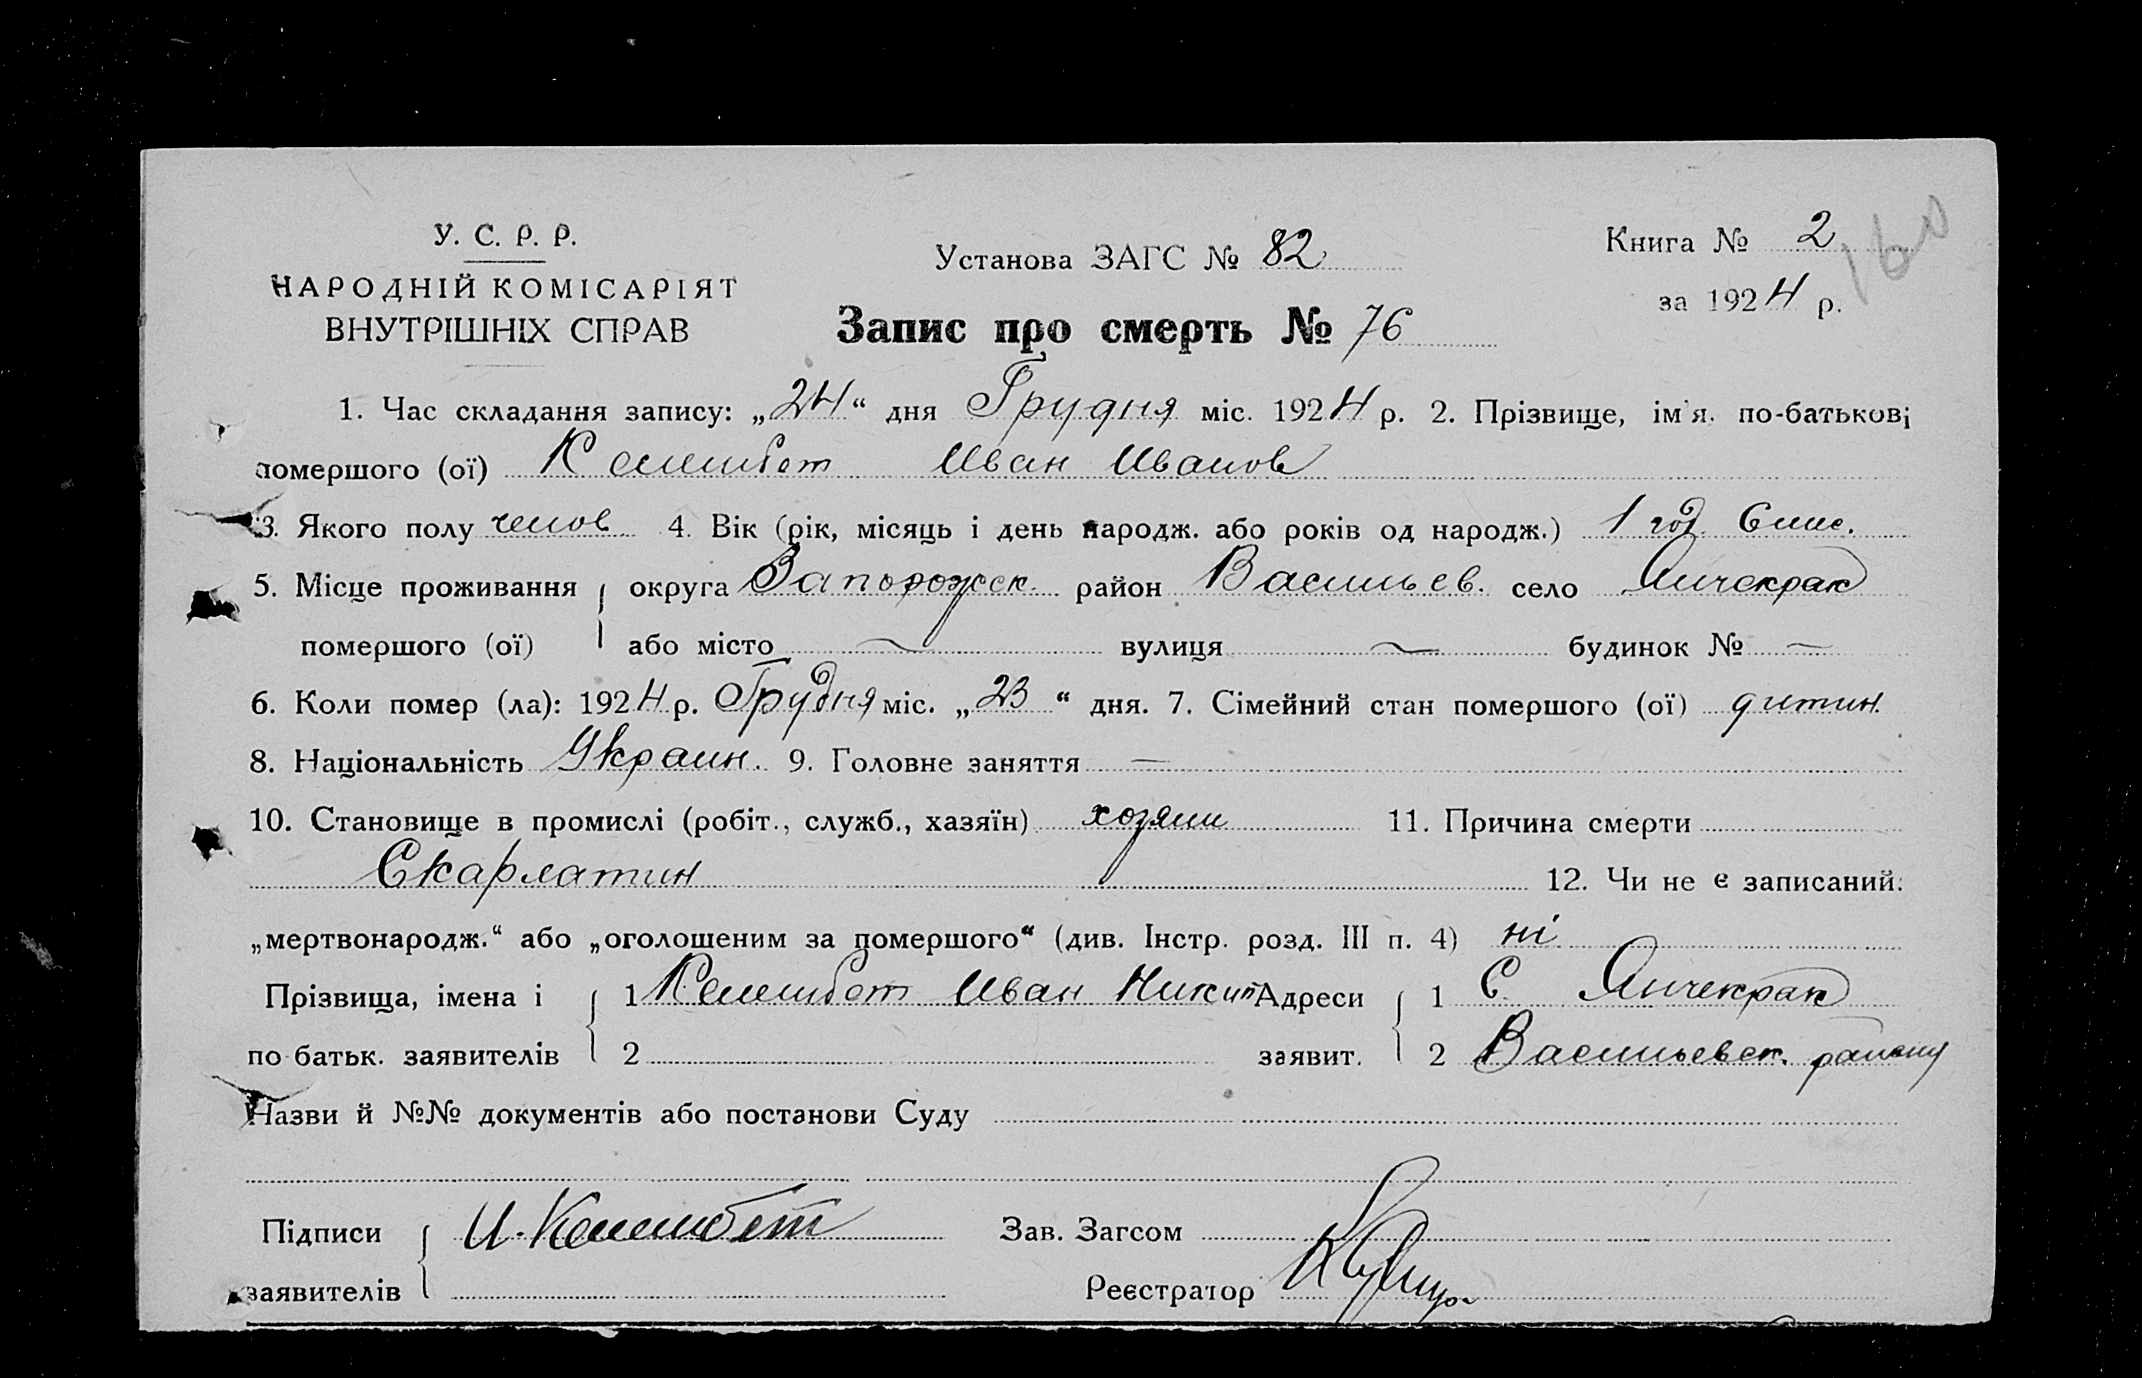 У. С. Р. Р.
НАРОДНІЙ КОМІСАРІЯТ
ВНУТРІШНІХ СПРАВ
Установа ЗАГС № 82
Книга № 2
160
за 1924 р.
Запис про смерть № 76
1. Час складання запису: „24“ дня Грудня міс. 1924 р. 2. Прізвище, ім'я, по-батькові
помершого (ої) Келешбет Иван Иванов
3. Якого полу челов 4. Вік (рік, місяць і день народж. або років од народж.) 1 год 6 мис.
5. Місце проживання округа Запорожск. район Васильев. село Янчекрак
помершого (ої) або місто — вулиця — будинок № —
6. Коли помер (ла): 1924 р. Грудня міс. „23“ дня. 7. Сімейний стан помершого (ої) дитин.
8. Національність Украин. 9. Головне заняття —
10. Становище в промислі (робіт., служб., хазяїн) хозяин 11. Причина смерти
Скарлатин 12. Чи не є записаний:
„мертвонародж.“ або „оголошеним за помершого“ (див. Інстр. розд. III п. 4) ні
Прізвища, імена і 1 Келешбет Иван Никит Адреси 1 С. Янчекрак
по батьк. заявителів 2 заявит. 2 Васильевск. району
Назви й №№ документів або постанови Суду
Підписи И. Келешбет Зав. Загсом
заявителів Реєстратор